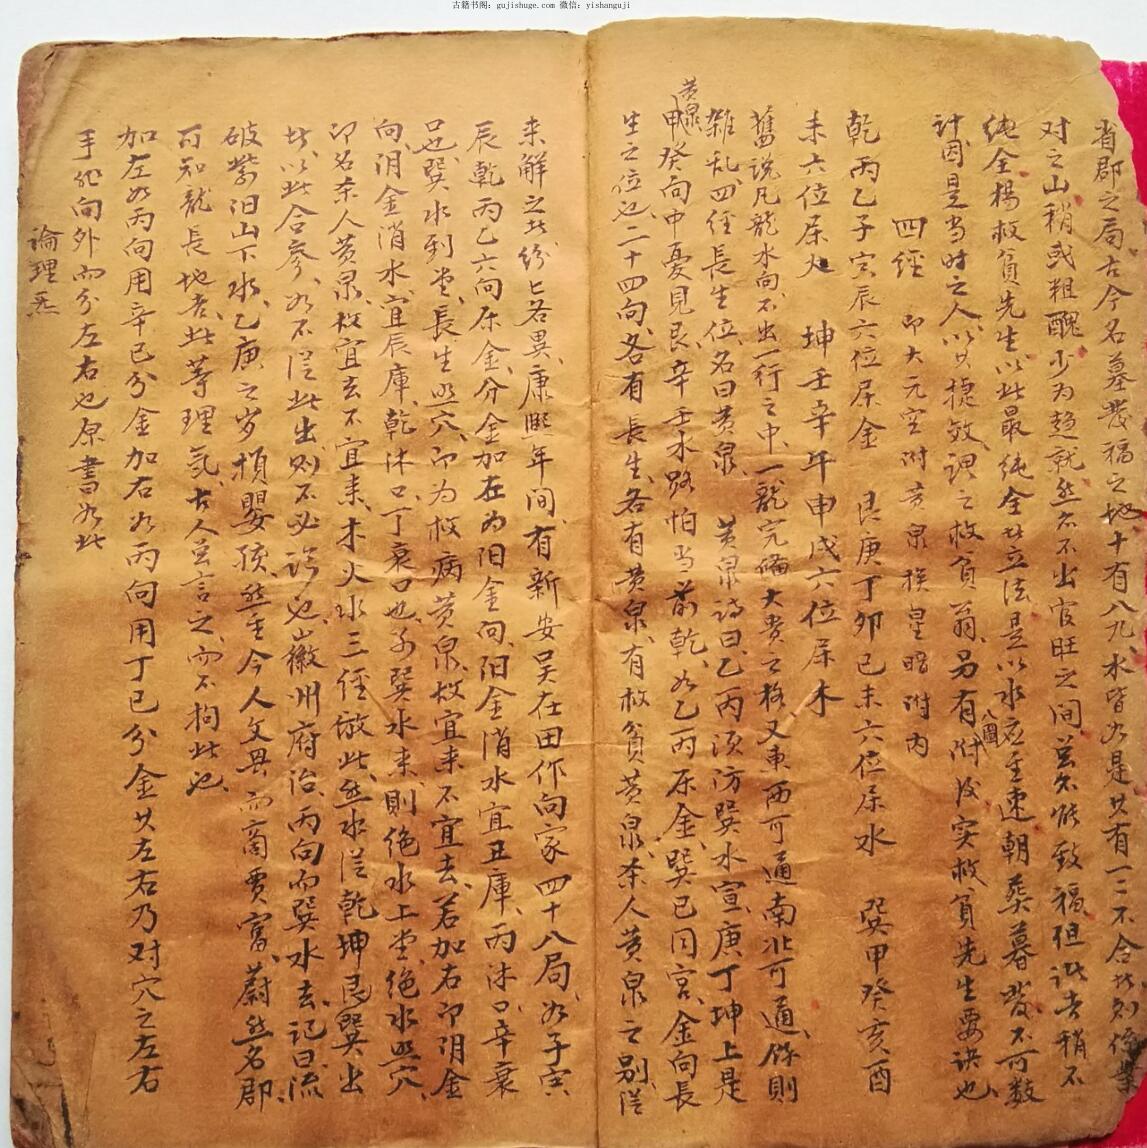 古籍书阁：gujishuge.com 微信：yishanguji
省郡之局古今名墓發福之地十有八九水皆如是其有一二不合此例
对之山稍或粗醜少为趋就然亦不出官旺之间並亦能致福但此去稍不
純全楊救貧先生以此最純全故立法是以水应至速朝葬暮發不可数
計因是当时之人以其捷效謂之救貧翁另有八圖附後实救貧先生要訣也
四經 即大元空附黄泉挨星暗附内
乾丙乙子寅辰六位屬金 艮庚丁卯巳未六位屬水 巽甲癸亥酉
未六位屬火 坤壬辛午申戌六位屬木
舊说凡龍水向不出一行之中一龍完俻大贵之格又東西可通南北可通餘則
雜乱四經長生位名曰黄泉 黄泉詩曰乙丙須防巽水宣庚丁坤上是
黄泉甲癸向中憂見艮辛壬水路怕当前乾如乙丙屬金巽巳同宫金向長
生之位也二十四向各有長生各有黄泉有救貧黄泉杀人黄泉之别從
来解之者紛匕各異康熙年间有新安吴在田作向家四十八局如子寅
辰乾丙乙六向屬金分金加在为阳金向阳金消水宜丑庫丙沐口辛衰
口也巽水到堂長生照穴即为救病黄泉故宜来不宜去若加右即阴金
向阴金消水宜辰庫乾沐口丁衰口也子巽水来則绝水上堂绝水照穴
即名杀人黄泉故宜去不宜来木火水三經倣此然水從乾坤艮巽出
者以此合参如不從此出則不必論也徽州府治丙向而巽水去記曰流
破紫阳山下水乙庚之岁損嬰孩然至今人文毋而商贾富蔚然名郡
可知龍長地吉此等理氣古人並言之而不拘此也
加左如丙向用辛巳分金加右如丙向用丁巳分金其左右乃对穴之左右
手非向外而分左右也原書如此
論理